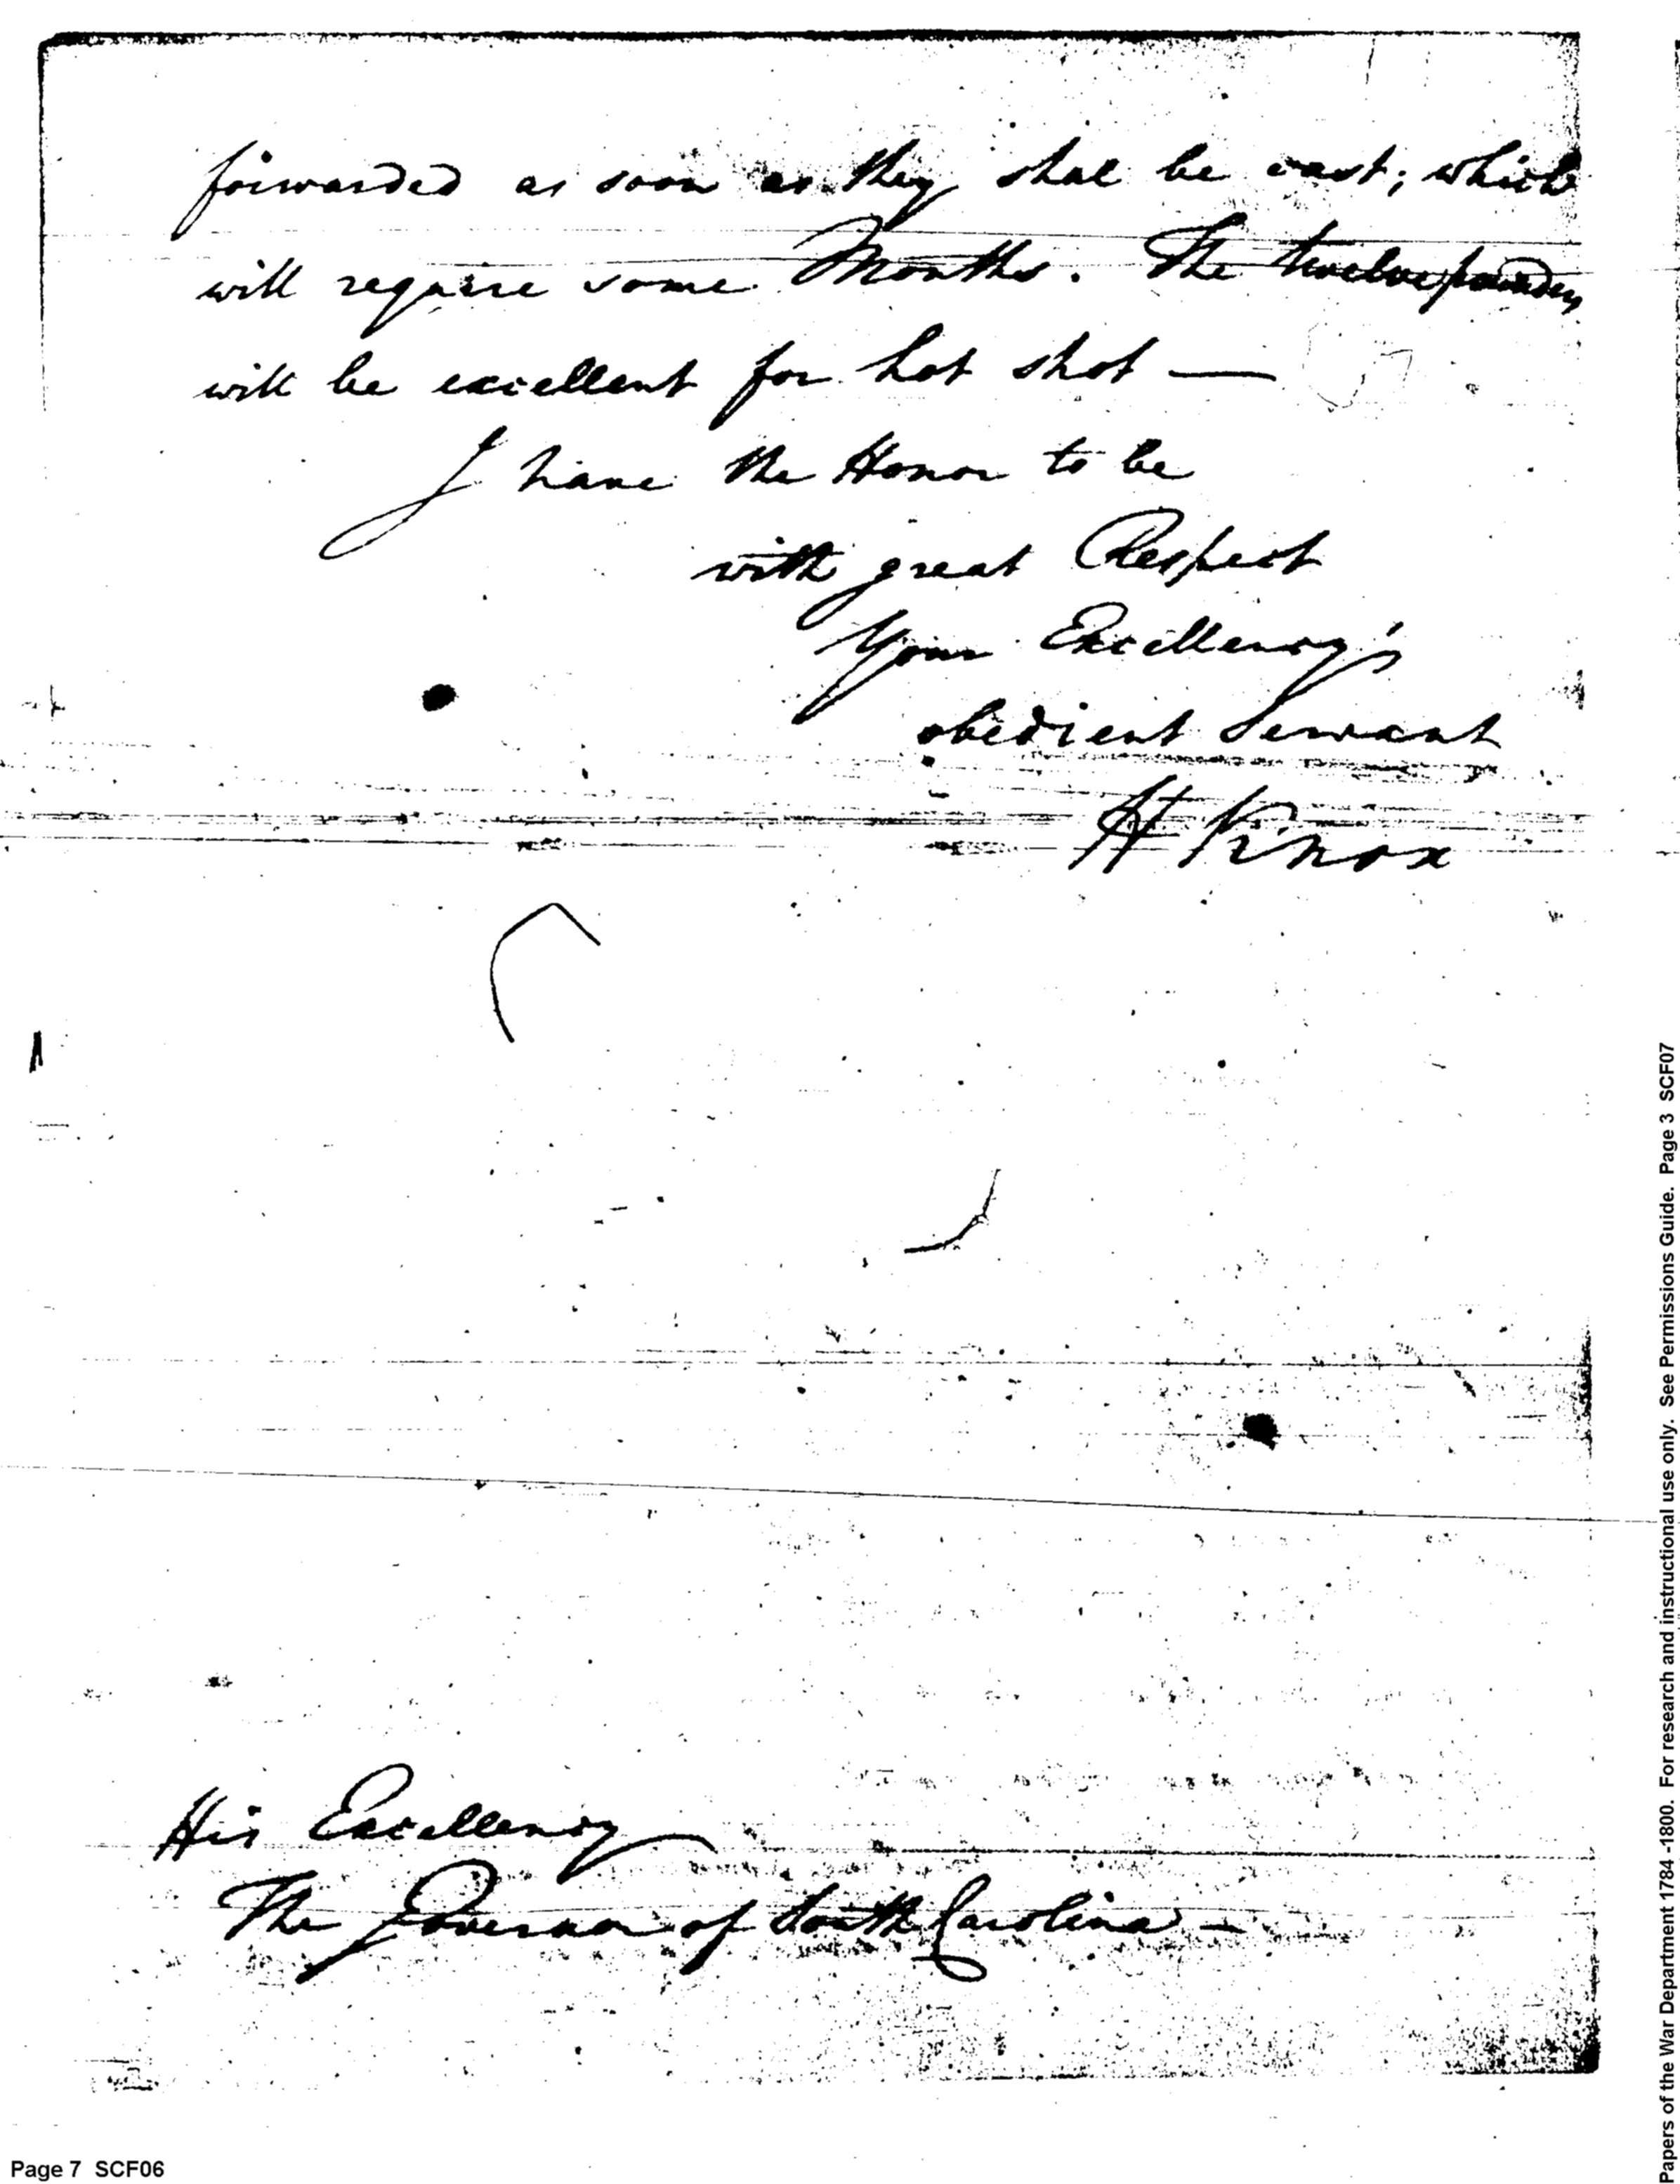 forwarded as soon as they shall be cast; which
will require some Months. The twelve pounders
will be excellent for hot shot —
I have the Honor to be
with great Respect
Your Excellency's
obedient Servant
H Knox
His Excellency
The Governor of South Carolina —
Page 7 SCF06
Papers of the War Department 1784 -1800. For research and instructional use only. See Permissions Guide. Page 3 SCF07